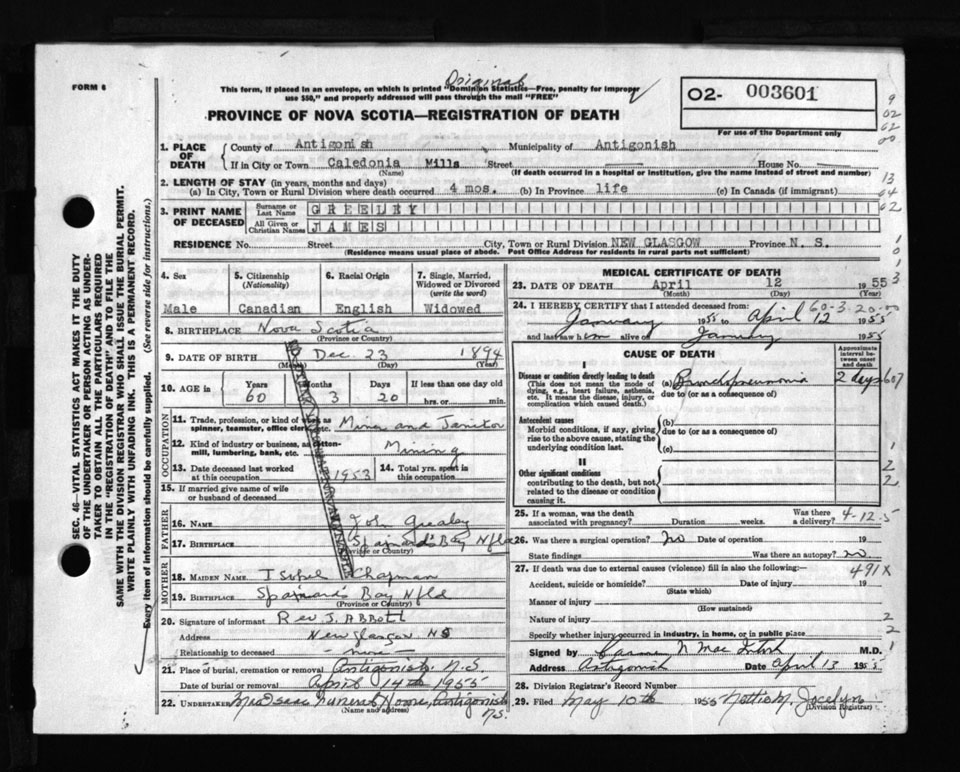 FORM 8
Original
This form, if placed in an envelope, on which is printed "Dominion Statistics—Free, penalty for improper
use $50," and properly addressed will pass through the mail "FREE"
PROVINCE OF NOVA SCOTIA—REGISTRATION OF DEATH
02- 003601
For use of the Department only
1. PLACE OF DEATH
County of Antigonish Municipality of Antigonish
If in City or Town Caledonia Mills Street House No.
(Name) (If death occurred in a hospital or institution, give the name instead of street and number)
2. LENGTH OF STAY (in years, months and days)
(a) In City, Town or Rural Division where death occurred 4 mos. (b) In Province life (c) In Canada (if immigrant)
3. PRINT NAME OF DECEASED
Surname or Last Name GREELEY
All Given or Christian Names JAMES
RESIDENCE No. Street City, Town or Rural Division NEW GLASGOW Province N. S.
(Residence means usual place of abode. Post Office Address for residents in rural parts not sufficient)
4. Sex
Male
5. Citizenship (Nationality)
Canadian
6. Racial Origin
English
7. Single, Married, Widowed or Divorced (write the word)
Widowed
8. BIRTHPLACE Nova Scotia
(Province or Country)
9. DATE OF BIRTH Dec. 23 1894
(Year)
10. AGE in Years 60 Months 3 Days 20 If less than one day old hrs. or min.
OCCUPATION
11. Trade, profession or kind of work as spinner, teamster, office clerk, etc. Miner and Janitor
12. Kind of industry or business, as cotton-mill, lumbering, bank, etc. Mining
13. Date deceased last worked at this occupation 1953
14. Total yrs. spent in this occupation
15. If married give name of wife or husband of deceased
FATHER
16. NAME John Grealey
17. BIRTHPLACE Spaniards Bay Nfld
(Province or Country)
MOTHER
18. MAIDEN NAME Isabel Chapman
19. BIRTHPLACE Spaniards Bay Nfld
(Province or Country)
20. Signature of informant Rev J. Abbott
Address New Glasgow NS
Relationship to deceased — none —
21. Place of burial, cremation or removal Antigonish N.S
Date of burial or removal April 14th 1955
22. UNDERTAKER Funeral Home, Antigonish
N.S.
(Name and address)
MEDICAL CERTIFICATE OF DEATH
23. DATE OF DEATH April 12 1955
(Month) (Day) (Year)
24. I HEREBY CERTIFY that I attended deceased from 60-3-20
January 1955 to April 12 1955
and last saw him alive on January 1955
CAUSE OF DEATH
Approximate interval between onset and death
I
Disease or condition directly leading to death
(This does not mean the mode of dying, e.g., heart failure, asthenia, etc. It means the disease, injury, or complication which caused death.)
(a) Bronchopneumonia 2 days
due to (or as a consequence of)
Antecedent causes
Morbid conditions, if any, giving rise to the above cause, stating the underlying condition last.
(b)
due to (or as a consequence of)
(c)
II
Other significant conditions
contributing to the death, but not related to the disease or condition causing it.
25. If a woman, was the death associated with pregnancy? Duration weeks. Was there a delivery? 4-12-5
26. Was there a surgical operation? no Date of operation 19
State findings Was there an autopsy? no
27. If death was due to external causes (violence) fill in also the following:— 491X
Accident, suicide or homicide? Date of injury 19
(State which)
Manner of injury
(How sustained)
Nature of injury
Specify whether injury occurred in industry, in home, or in public place
Signed by N Mac Intosh M.D.
Address Antigonish Date April 13 1955
28. Division Registrar's Record Number
29. Filed May 10th 1955 Jocelyn
(Division Registrar)
SEC. 46—VITAL STATISTICS ACT MAKES IT THE DUTY
OF THE UNDERTAKER OR PERSON ACTING AS UNDERTAKER
TO OBTAIN ALL THE PARTICULARS REQUIRED
IN THE "REGISTRATION OF DEATH" AND TO FILE THE
SAME WITH THE DIVISION REGISTRAR WHO SHALL ISSUE THE BURIAL PERMIT.
WRITE PLAINLY WITH UNFADING INK. THIS IS A PERMANENT RECORD.
Every item of information should be carefully supplied. (See reverse side for instructions.)